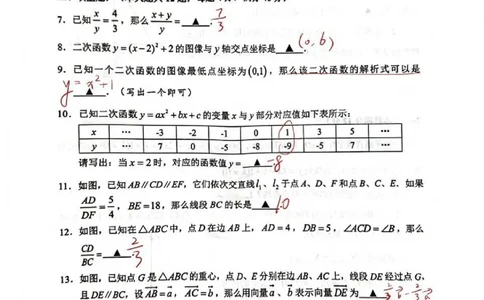 7. 已知 x/y = 4/3，那么 (x+y)/y = ▲ . 7/3
8. 二次函数 y=(x−2)²+2 的图像与 y 轴交点坐标是 ▲ . (0,6)
9. 已知一个二次函数的图像最低点坐标为 (0,1)，那么该二次函数的解析式可以是
y=x²+1 ▲ .（写出一个即可）
10. 已知二次函数 y=ax²+bx+c 的变量 x 与 y 部分对应值如下表所示：
x … -3 -2 -1 0 1 3 5 …
y … 7 0 -5 -8 -9 -5 7 …
请写出：当 x=2 时，对应的函数值 y= ▲ . -8
11. 如图，已知 AB//CD//EF，它们依次交直线 l₁、l₂ 于点 A、D、F 和点 B、C、E．如果
AD/DF = 5/4，BE=18，那么线段 BC 的长是 ▲ . 10
12. 如图，已知在△ABC 中，点 D 在边 AB 上，AD=4，DB=5，∠ACD=∠B，那么
CD/BC = ▲ . 2/3
13. 如图，已知点 G 是△ABC 的重心，点 D、E 分别在边 AB、AC 上，线段 DE 经过点 G，
且 DE//BC，设 AB=a，AC=b，那么用向量 a、b 表示向量 DE 为 ▲